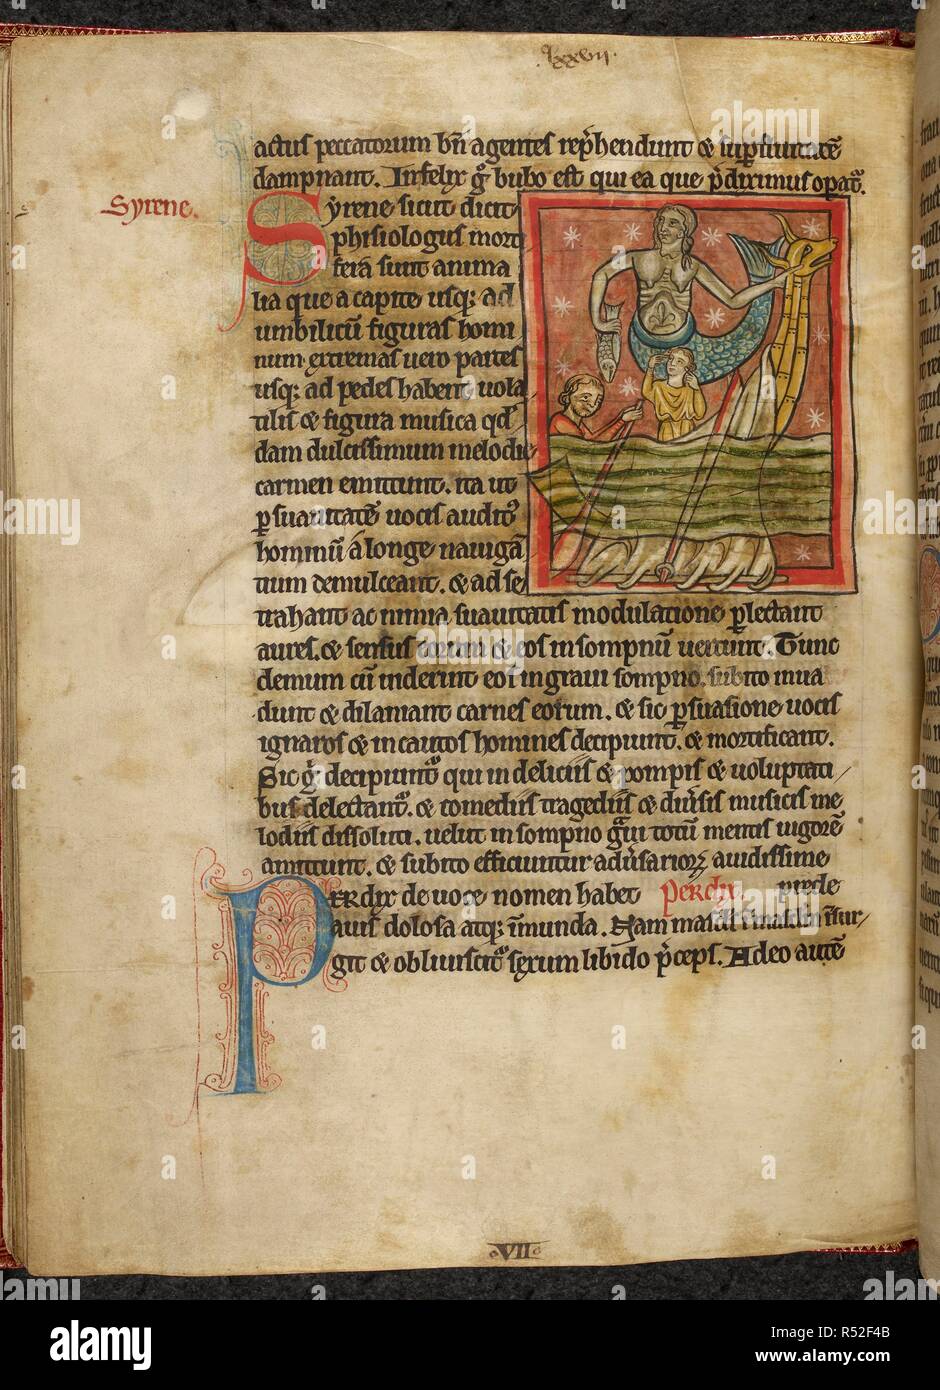 lxxvii.
actus peccatorum bn̄ agentes rep̄hendunt & sup̄fluitatē
dampnant. Infelix g̊ bubo est qui ea que p̄diximus opat᷑.
Syrene.
Syrene sicut dicit
phisiologus morti
fera sunt anima
lia que a capite usq; ad
umbilicū figuras homi
num extremas uero partes
usq; ad pedes habent uola
tilis & figura musica qd̄
dam dulcissimum melodie
carmen emittunt. ita ut
ꝑ suauitatē uocis audit᷒
hominū a longe nauigā
tium demulceant. & ad se
trahant ac nimia suauitatis modulatione ꝑlectant
aures. & sensus eorum & eos in sompnū uertunt. Tunc
demum cū uiderint eos in graui sompno. subito inua
dunt & dilaniant carnes eorum. & sic ꝑsuasione uocis
ignaros & incautos homines decipiunt. & mortificant.
Sic g̊ decipiunt᷑ qui in deliciis & pompis & uoluptati
bus delectant᷑. & comediis tragediis & diu̾sis musicis me
lodiis dissoluti. uelut in sompno g̾ui totū mentis uigorē
amittunt. & subito efficiuntur adu̾sarioꝝ auidissime
Perdix de uoce nomen habet Perdix. prede
auis dolosa atq; īmunda. Nam masculus ī masculū īsur
git & obliuiscit᷑ sexum libido p̄ceps. Adeo autē
VII
alamy
Image ID: R52F4B
www.alamy.com